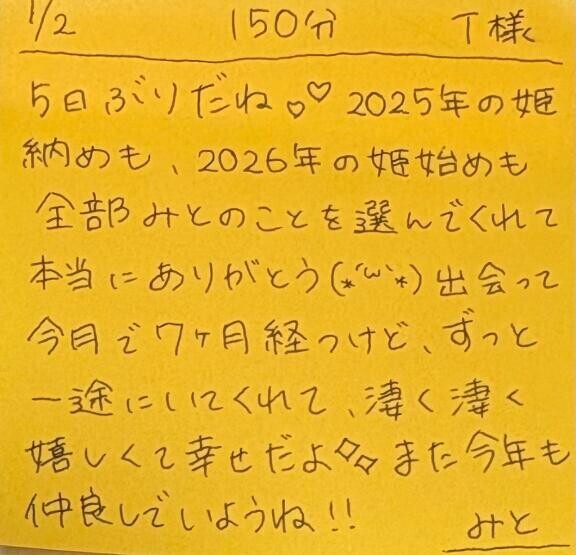 1/2 150分 T様
5日ぶりだね♡♡ 2025年の姫
納めも、2026年の姫始めも
全部みとのことを選んでくれて
本当にありがとう(*´ω`*)出会って
今月で7ヶ月経つけど、ずっと
一途にいてくれて、凄く凄く
嬉しくて幸せだよ◇◇また今年も
仲良しでいようね!!
みと